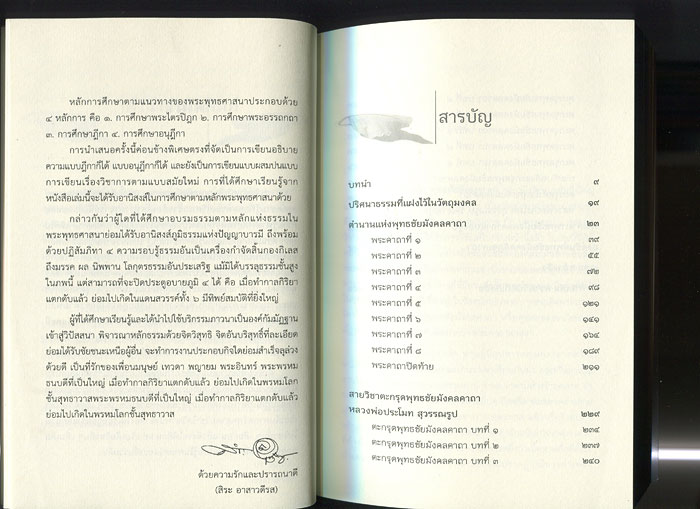 หลักการศึกษาตามแนวทางของพระพุทธศาสนาประกอบด้วย
๔ หลักการ คือ ๑. การศึกษาพระไตรปิฎก ๒. การศึกษาพระอรรถกถา
๓. การศึกษาฎีกา ๔. การศึกษาอนุฎีกา
การนำเสนอครั้งนี้ค่อนข้างพิเศษตรงที่จัดเป็นการเขียนอธิบาย
ความแบบฎีกาก็ได้ แบบอนุฎีกาก็ได้ และยังเป็นการเขียนแบบผสมปนแบบ
การเขียนเรื่องวิชาการตามแบบสมัยใหม่ การที่ได้ศึกษาเรียนรู้จาก
หนังสือเล่มนี้จะได้รับอานิสงส์ในการศึกษาตามหลักพระพุทธศาสนาด้วย
กล่าวกันว่าผู้ใดที่ได้ศึกษาอบรมธรรมตามหลักแห่งธรรมใน
พระพุทธศาสนาย่อมได้รับอานิสงส์ภูมิธรรมแห่งปัญญาบารมี ถึงพร้อม
ด้วยปฏิสัมภิทา ๔ ความรอบรู้ธรรมอันเป็นเครื่องกำจัดสิ้นกองกิเลส
ถึงมรรค ผล นิพพาน โลกุตรธรรมอันประเสริฐ แม้มิได้บรรลุธรรมชั้นสูง
ในภพนี้ แต่สามารถที่จะปิดประตูอบายภูมิ ๔ ได้ คือ เมื่อทำกาลกิริยา
แตกดับแล้ว ย่อมไปเกิดในแดนสวรรค์ทั้ง ๖ มีทิพย์สมบัติที่ยิ่งใหญ่
ผู้ที่ได้ศึกษาเรียนรู้และได้นำไปใช้บริกรรมภาวนาเป็นองค์กัมมัฏฐาน
เข้าสู่วิปัสสนา พิจารณาหลักธรรมด้วยจิตวิสุทธิ จิตอันบริสุทธิ์ที่ละเอียด
ย่อมได้รับชัยชนะเหนือผู้อื่น จะทำการงานประกอบกิจใดย่อมสำเร็จลุล่วง
ด้วยดี เป็นที่รักของเพื่อนมนุษย์ เทวดา พญายม พระอินทร์ พระพรหม
ธนบดีที่เป็นใหญ่ เมื่อทำกาลกิริยาแตกดับแล้ว ย่อมไปเกิดในพรหมโลก
ชั้นสุทธาวาสพระพรหมธนบดีที่เป็นใหญ่ เมื่อทำกาลกิริยาแตกดับแล้ว
ย่อมไปเกิดในพรหมโลกชั้นสุทธาวาส
ด้วยความรักและปรารถนาดี
(สิระ อาสาวดีรส)
สารบัญ
บทนำ ๙
ปริศนาธรรมที่แฝงไว้ในวัตถุมงคล ๑๙
ตำนานแห่งพุทธชัยมังคลคาถา ๒๓
พระคาถาที่ ๑ ๓๙
พระคาถาที่ ๒ ๕๕
พระคาถาที่ ๓ ๗๒
พระคาถาที่ ๔ ๙๘
พระคาถาที่ ๕ ๑๒๑
พระคาถาที่ ๖ ๑๔๑
พระคาถาที่ ๗ ๑๖๔
พระคาถาที่ ๘ ๑๘๙
พระคาถาปิดท้าย ๒๑๑
สายวิชาตะกรุดพุทธชัยมังคลคาถา
หลวงพ่อประโมท สุวรรณรูป ๒๒๙
ตะกรุดพุทธชัยมังคลคาถา บทที่ ๑ ๒๓๔
ตะกรุดพุทธชัยมังคลคาถา บทที่ ๒ ๒๓๗
ตะกรุดพุทธชัยมังคลคาถา บทที่ ๓ ๒๔๐